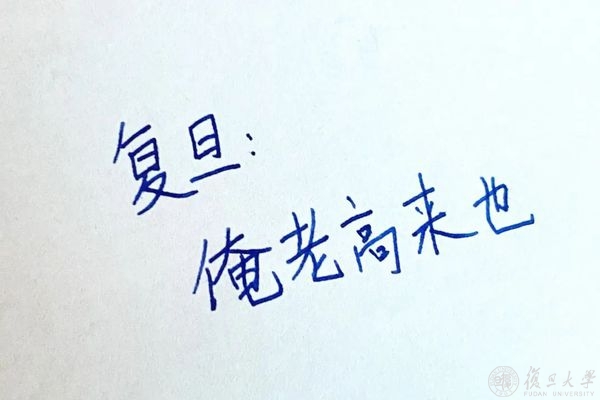 复旦：
俺老高来也
復旦大學
FUDAN UNIVERSITY